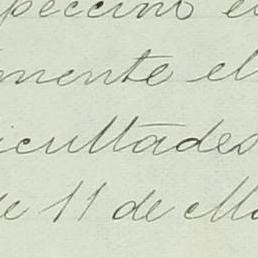 peccino e
mente el
icultades
de 11 de Ma